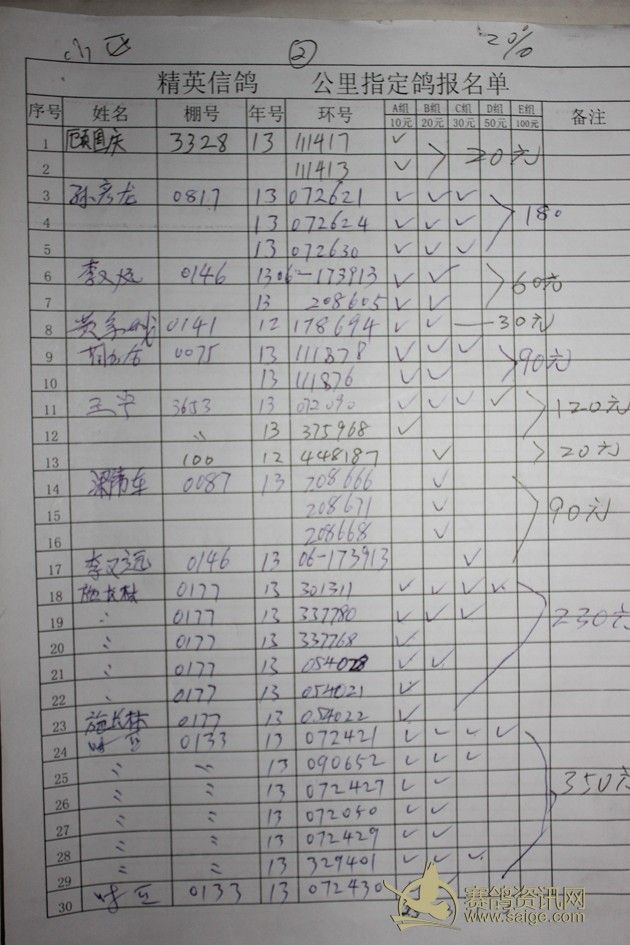 小区 ② 20%
精英信鸽 公里指定鸽报名单
序号 姓名 棚号 年号 环号 A组 B组 C组 D组 E组 备注
10元 20元 30元 50元 100元
1 顾国庆 3328 13 111417 ✓
2 111413 ✓ 20元
3 孙彦龙 0817 13 072621 ✓ ✓ ✓
4 13 072624 ✓ ✓ ✓ 180
5 13 072630 ✓ ✓ ✓
6 李文远 0146 13 06-173913 ✓ ✓
7 13 208605 ✓ ✓ 60元
8 0141 12 178694 ✓ ✓ 30元
9 0075 13 111878 ✓ ✓ ✓
10 13 111876 ✓ ✓ 90元
11 王平 3653 13 072090 ✓ ✓ ✓ ✓
12 〃 13 375968 ✓ 120元
13 100 12 448187 ✓ 20元
14 梁伟东 0087 13 208666 ✓
15 208671 ✓ 90元
16 208668 ✓
17 李文远 0146 13 06-173913 ✓
18 施长林 0177 13 301311 ✓ ✓ ✓ ✓
19 〃 0177 13 337780 ✓ ✓ ✓ 230元
20 〃 0177 13 337768 ✓
21 〃 0177 13 054028 ✓ ✓
22 〃 0177 13 054021 ✓
23 施长林 0177 13 054022 ✓
24 0133 13 072421 ✓ ✓ ✓ ✓
25 〃 〃 13 090652 ✓ ✓ ✓
26 〃 〃 13 072427 ✓ ✓ 350元
27 〃 〃 13 072050 ✓ ✓
28 〃 〃 13 072429 ✓ ✓
29 〃 〃 13 329401 ✓ ✓ ✓
30 0133 13 072430
赛鸽资讯网
www.saige.com